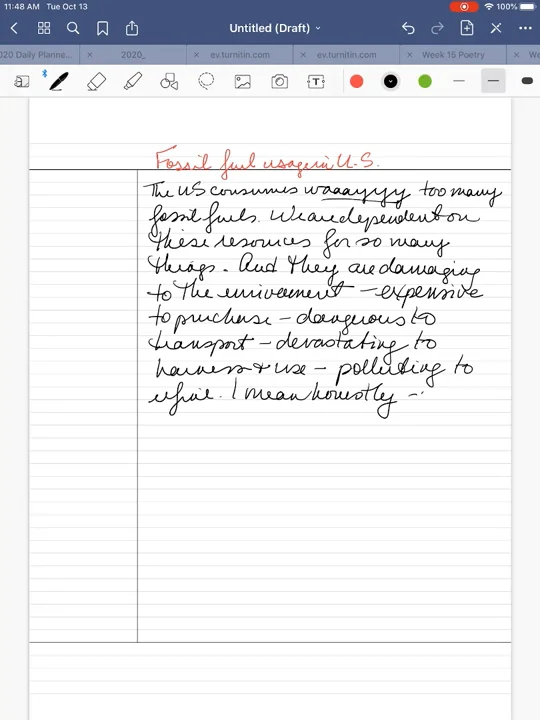 11:48 AM Tue Oct 13
100%
Untitled (Draft)
020 Daily Planne...
2020_
ev.turnitin.com
ev.turnitin.com
Week 15 Poetry
We
T
Fossil fuel usage in U.S.
The US consumes waaayyyy too many
fossil fuels. We are dependent on
these resources for so many
things. And they are damaging
to the enviroement – expensive
to purchase – dangerous to
transport – devastating to
harness + use – polluting to
refine. I mean honestly –